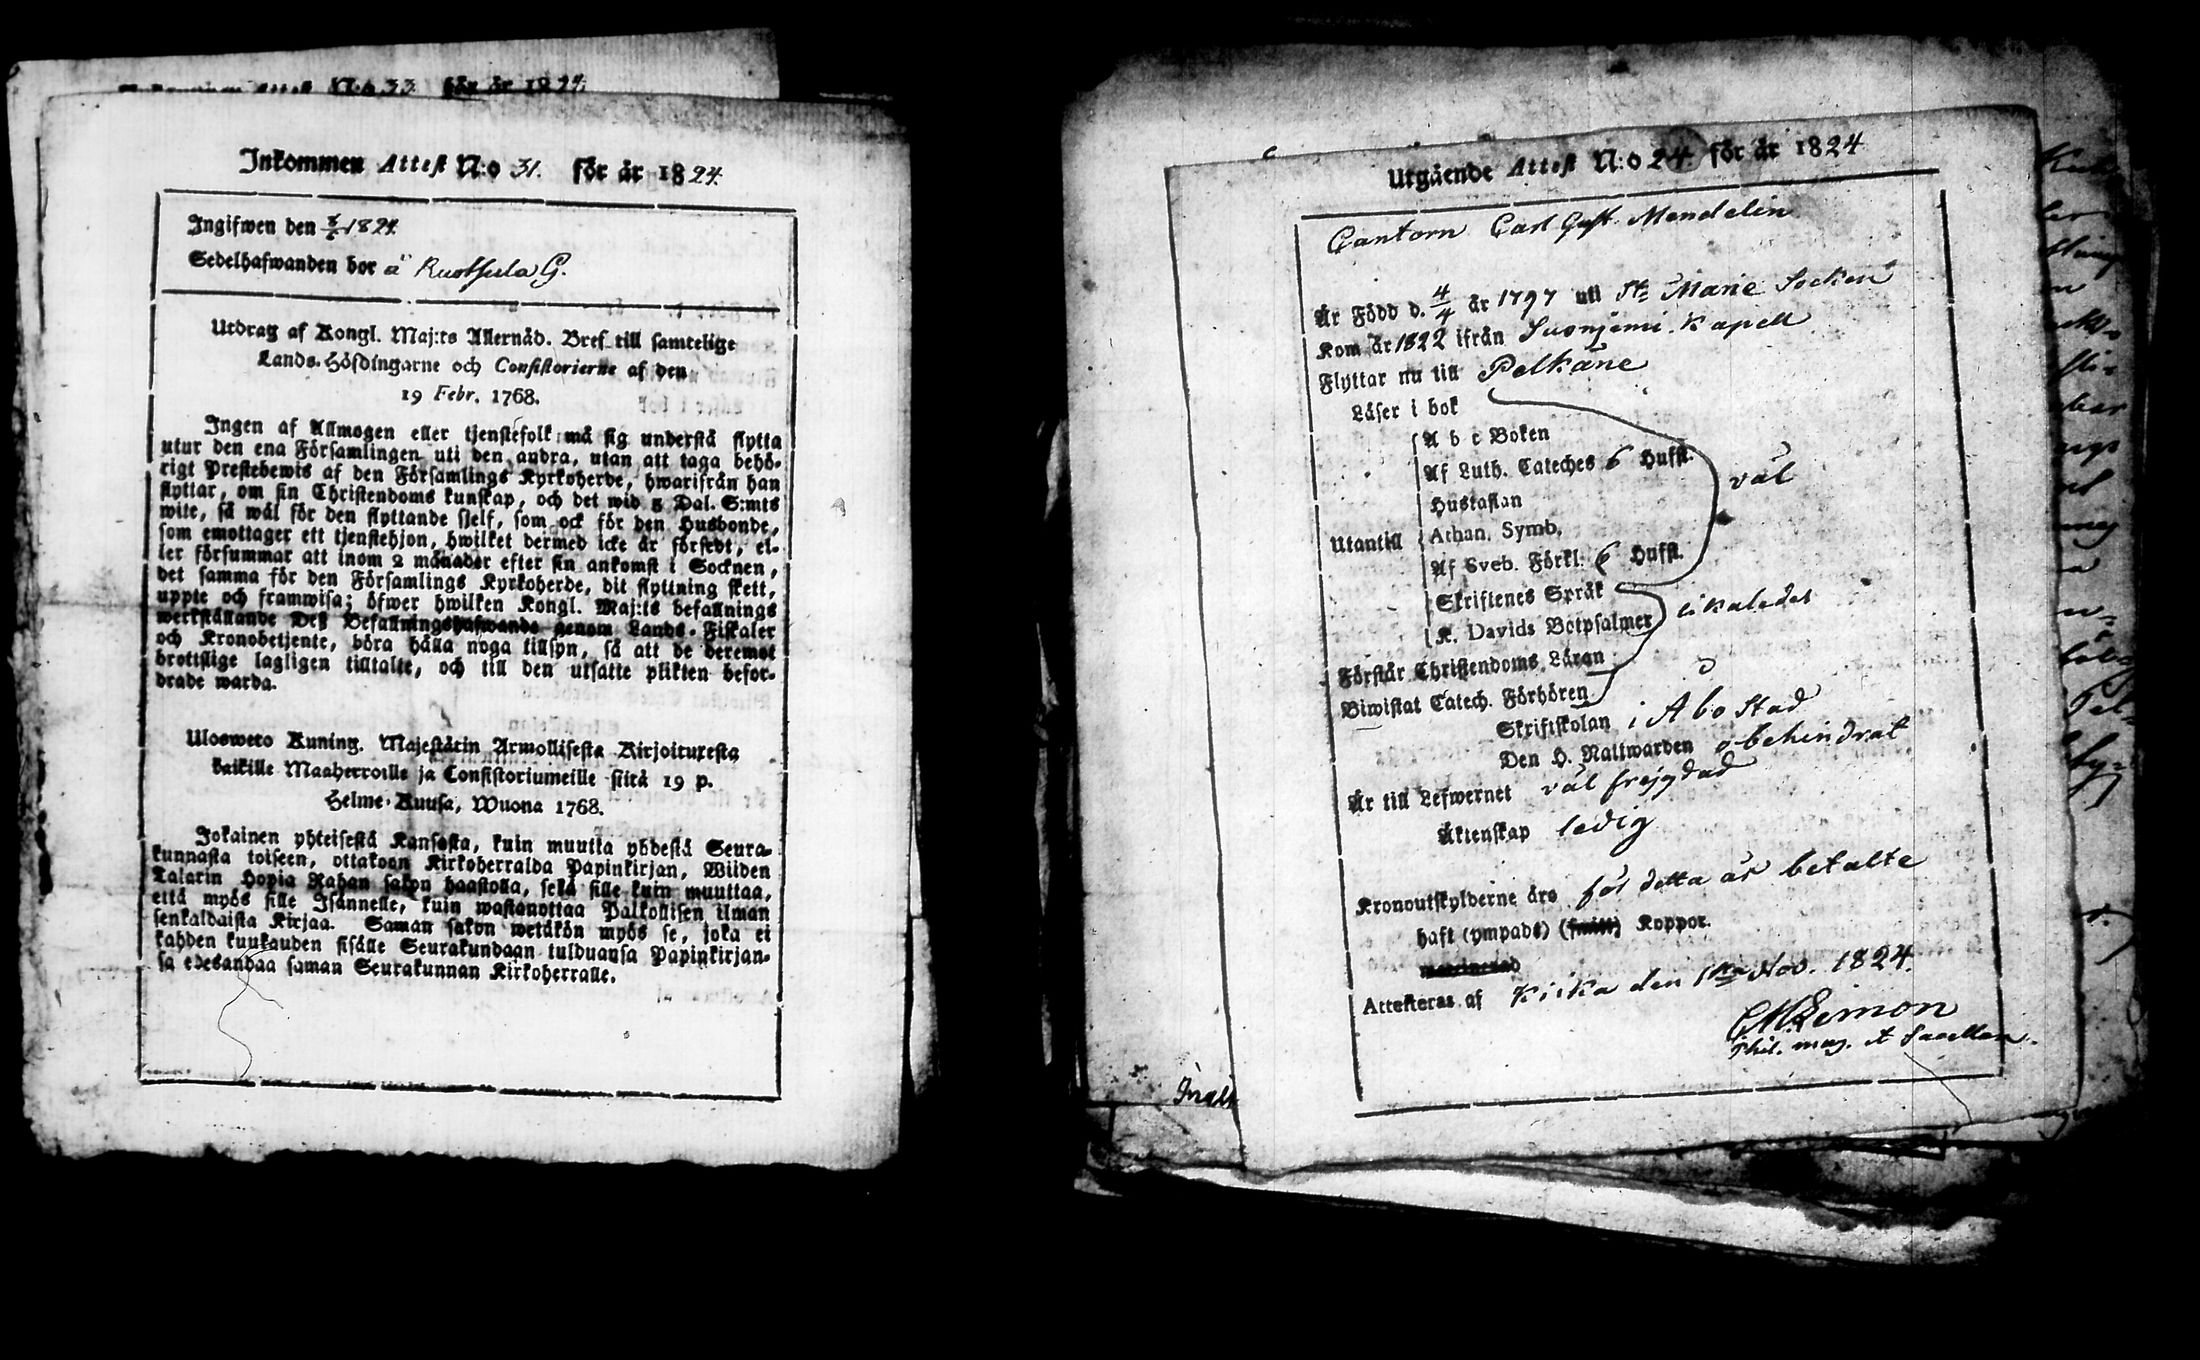 Attest N:o 33 för år 1824.
Inkommen Attest N:o 31. för år 1824.
Ingifwen den 1824.
Sedelhafwanden bor å G.
Utdrag af Kongl. Maj:ts Allernåd. Bref till samtelige
Lands-Höfdingarne och Consistorierne af den
19 Febr. 1768.
Ingen af Allmogen eller tjenstefolk må sig understå flytta
utur den ena Församlingen uti den andra, utan att taga behö-
rigt Prestebewis af den Församlings Kyrkoherde, hwarifrån han
flyttar, om sin Christendoms kunskap, och det wid 5 Dal. S:mts
wite, så wäl för den flyttande sjelf, som ock för den Husbonde,
som emottager ett tjenstehjon, hwilket dermed icke är försedt, el-
ler försummar att inom 2 månader efter sin ankomst i Socknen,
det samma för den Församlings Kyrkoherde, dit flyttning skett,
uppte och framwisa; öfwer hwilken Kongl. Maj:ts befallnings
werkställande Deß Befallningshafwande genom Lands-Fiskaler
och Kronobetjente, böra hålla noga tillsyn, så att de deremot
brottslige lagligen tilltalte, och till den utsatte plikten befor-
drade warda.
Ulosweto Kuning. Majestätin Armollisesta Kirjoituxesta
kaikille Maaherroille ja Consistoriumeille siitä 19 p.
Helme-Kuusa, Wuona 1768.
Jokainen yhteisestä Kansasta, kuin muutta yhdestä Seura-
kunnasta toiseen, ottakoon Kirkoherralda Papinkirjan, Wiiden
Talarin Hopia Rahan sakon haastolla, sekä sille kuin muuttaa,
että myös sille Isännelle, kuin wastanottaa Palkollisen ilman
senkaldaista Kirjaa. Saman sakon wetäkön myös se, joka ei
kahden kuukauden sisälle Seurakundaan tulduansa Papinkirjan-
sa edesandaa saman Seurakunnan Kirkoherralle.
Utgående Attest N:o 24 för år 1824
Cantorn Carl Gust. Mendelin
Är Född d. 4/4 år 1797 uti St: Marie Socken
Kom år 1822 ifrån Suonjemi Kapell
Flyttar nu till Pelkäne
Läser i bok
A b c Boken
Af Luth. Cateches 6 Hufst.
väl
Hustaflan
Utantill Athan. Symb.
Af Sveb. Förkl: 6 Hufst.
Skriftenes Språk
likaledes
K. Davids Botpsalmer
Förstår Christendoms Läran
Biwistat Catech. Förhören
Skriftskolan i Åbo Stad
Den H. Nattwarden obehindrat
Är till Lefwernet väl frejgdad
Äktenskap ledig
Kronoutskylderne äro för detta år betalte
haft (ympade) (smitt) Koppor.
Attesteras af Kiika den 1sta Nov. 1824.
Phil. mag.